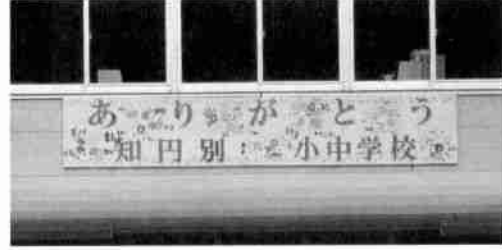 ありがとう
知円別小中学校